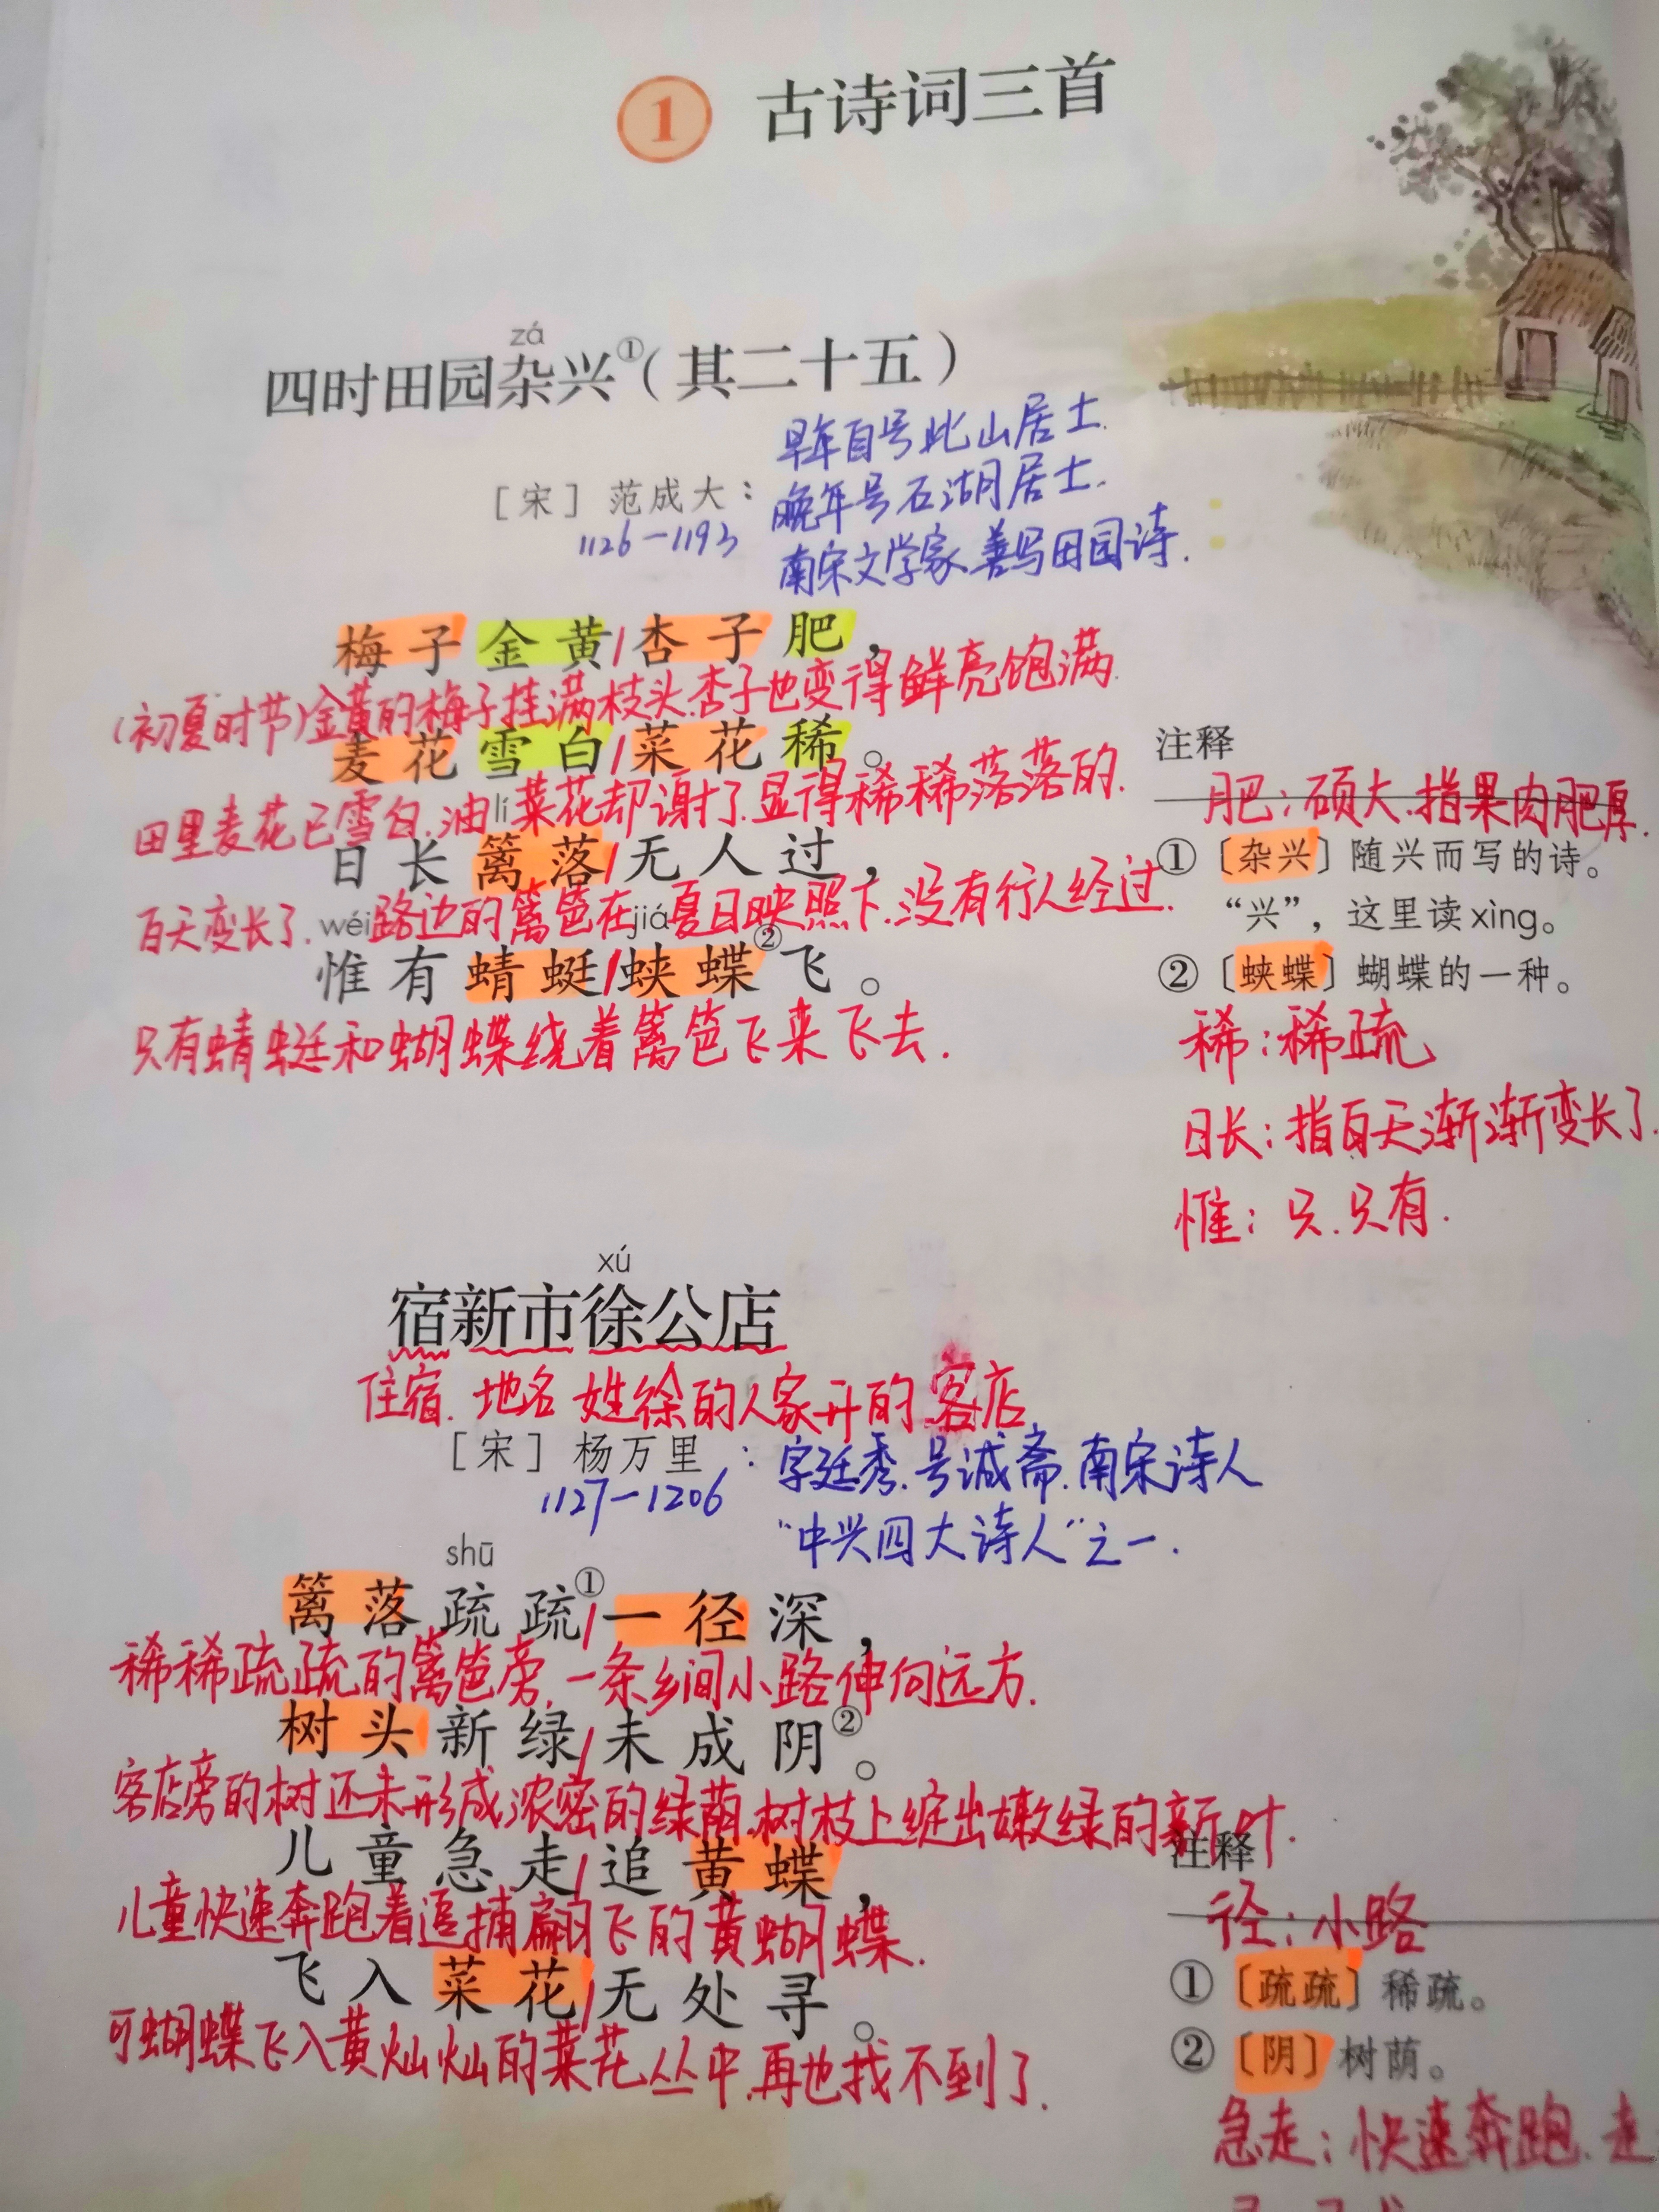 1 古诗词三首
zá
四时田园杂兴①(其二十五)
早年自号此山居士.
[宋] 范成大：晚年号石湖居士.
1126—1193
南宋文学家.善写田园诗.
梅子金黄/杏子肥，
(初夏时节)金黄的梅子挂满枝头.杏子也变得鲜亮饱满.
麦花雪白/菜花稀。
田里麦花已雪白.油菜花却谢了.显得稀稀落落的.
lí
日长篱落/无人过，
白天变长了.路边的篱笆在夏日映照下.没有行人经过.
wéi jiá
惟有蜻蜓/蛱蝶②飞。
只有蜻蜓和蝴蝶绕着篱笆飞来飞去.
注释
肥：硕大.指果肉肥厚.
①〔杂兴〕随兴而写的诗。
“兴”，这里读xìng。
②〔蛱蝶〕蝴蝶的一种。
稀：稀疏
日长：指白天渐渐变长了.
惟：只.只有.
xú
宿新市徐公店
住宿.地名 姓徐的人家开的客店
[宋] 杨万里：字廷秀.号诚斋.南宋诗人
1127—1206
“中兴四大诗人”之一.
shū
篱落疏疏①/一径深，
稀稀疏疏的篱笆旁.一条乡间小路伸向远方.
树头新绿/未成阴②。
客店旁的树还未形成浓密的绿荫.树枝上绽出嫩绿的新叶.
儿童急走/追黄蝶，
儿童快速奔跑着追捕翩飞的黄蝴蝶.
飞入菜花/无处寻。
可蝴蝶飞入黄灿灿的菜花丛中.再也找不到了.
注释
径：小路
①〔疏疏〕稀疏。
②〔阴〕树荫。
急走：快速奔跑.走